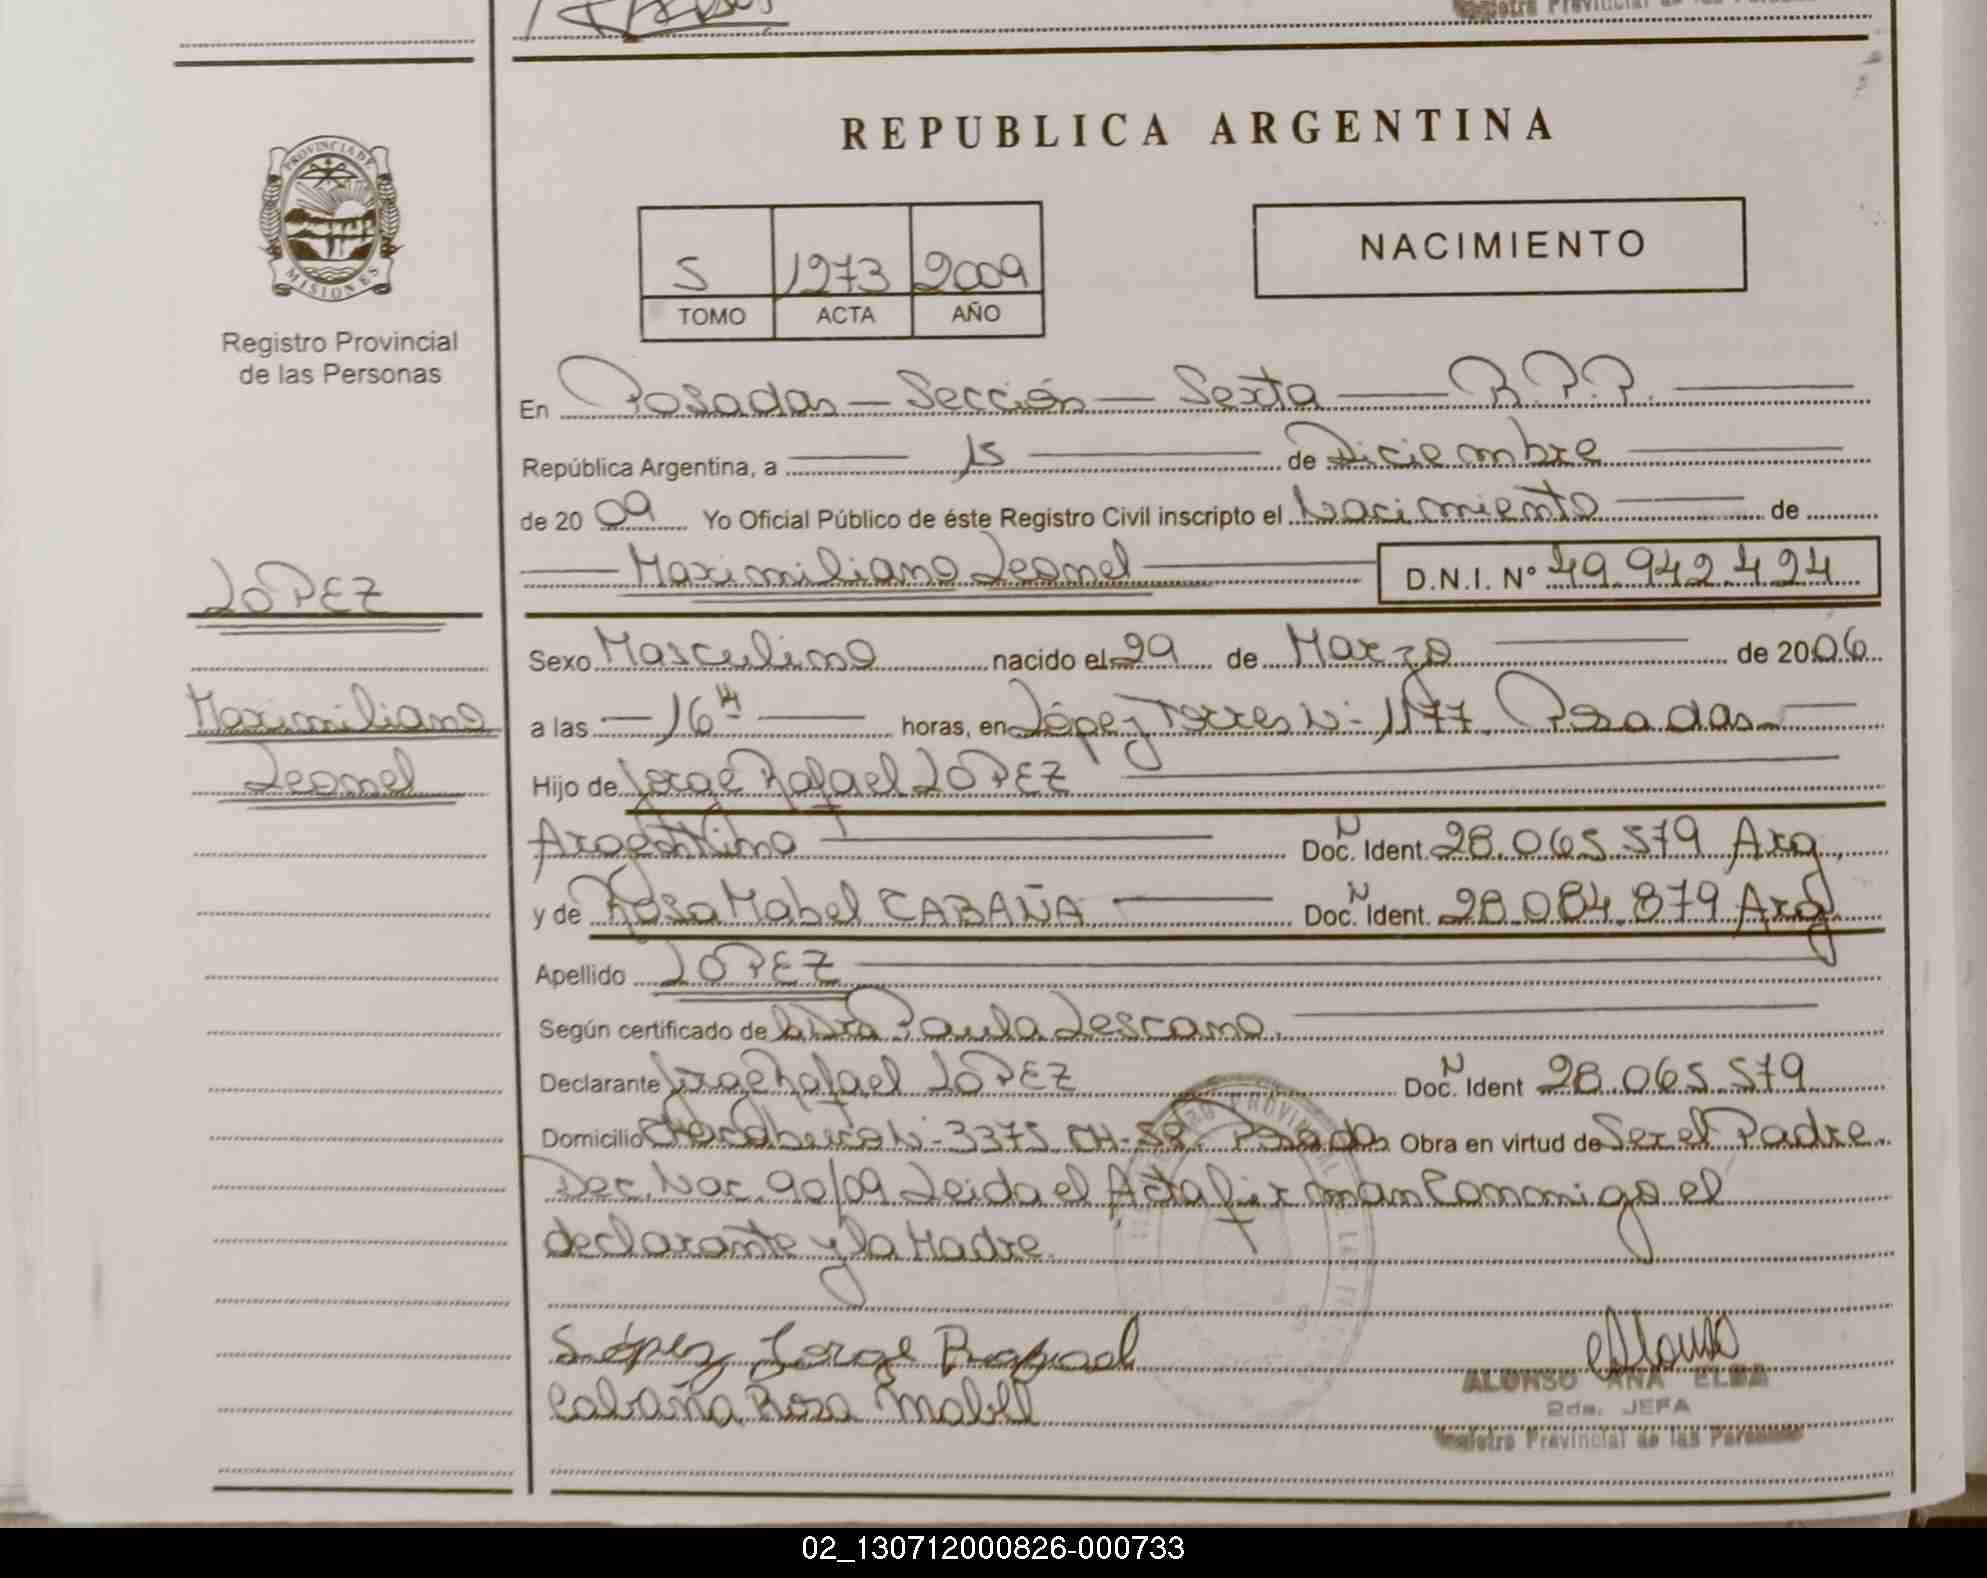 PROVINCIA DE
MISIONES
Registro Provincial
de las Personas
LOPEZ
Maximiliano
Leonel
REPUBLICA ARGENTINA
5 1273 2009
TOMO ACTA AÑO
NACIMIENTO
En Posadas – Sección – Sexta — R.P.P.
República Argentina, a — 15 — de Diciembre
de 2009 Yo Oficial Público de éste Registro Civil inscripto el Nacimiento — de
Maximiliano Leonel — D.N.I. Nº 49 942 424
Sexo Masculino nacido el 29 de Marzo — de 2006
a las — 16 H — horas, en López Torres Nº 1177. Posadas
Hijo de Jorge Rafael LOPEZ
Argentino — Doc. Nº Ident. 28.065.579 Arg
y de Rosa Mabel CABAÑA — Doc. Nº Ident. 28.084.879 Arg
Apellido LOPEZ
Según certificado de la Dra Paula Lescano.
Declarante Jorge Rafael LOPEZ Doc. Nº Ident 28.065.579
Domicilio Nº 3375 CH-52. Posadas Obra en virtud de Ser el Padre.
Dec. Nac. 90/09 Leida el Acta firman Conmigo el
declarante y la Madre.
López Jorge Rafael
Cabaña Rosa Mabel
ALONSO ANA ELBA
2da. JEFA
Registro Provincial de las Personas
02_130712000826-000733